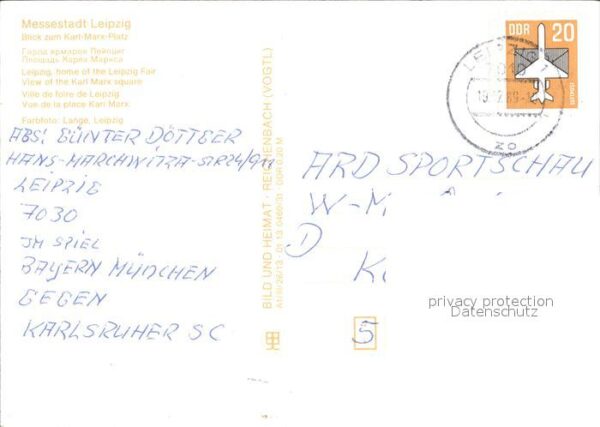 Messestadt Leipzig
Blick zum Karl-Marx-Platz
Город ярмарок Лейпциг
Площадь Карла Маркса
Leipzig, home of the Leipzig Fair
View of the Karl Marx square
Ville de foire de Leipzig
Vue de la place Karl Marx
Farbfoto: Lange, Leipzig
ABS: GÜNTER DÖTTGER
HANS-MARCHWITZA-STR 24/911
LEIPZIG
7030
IM SPIEL
BAYERN MÜNCHEN
GEGEN
KARLSRUHER SC
BILD UND HEIMAT · REICHENBACH (VOGTL)
DDR 0,20 M
DDR 20
LEIPZIG
ARD SPORTSCHAU
W-
D
K
5
privacy protection
Datenschutz